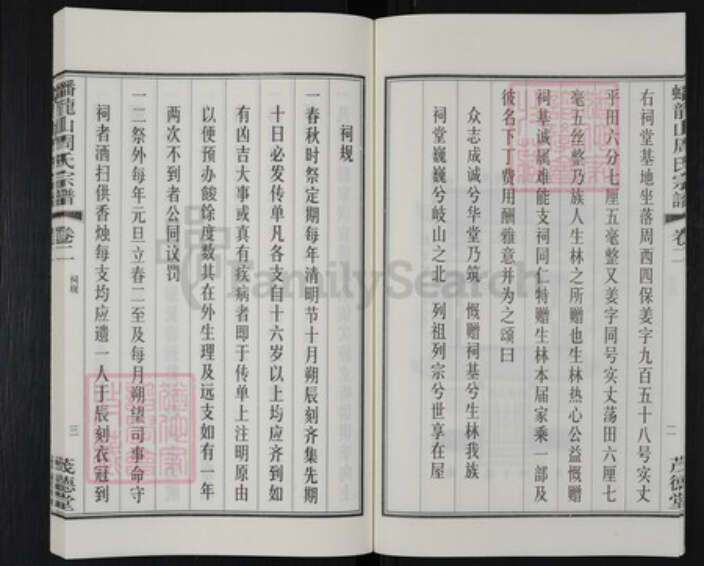 右祠堂基地坐落周西四保姜字九百五十八号实丈
平田六分七厘五毫整又姜字同号实丈荡田六厘七
毫五丝整乃族人生林之所赠也生林热心公益慨赠
祠基诚属难能支祠同仁特赠生林本届家乘一部及
彼名下丁费用酬雅意并为之颂曰
众志成诚兮华堂乃筑 慨赠祠基兮生林我族
祠堂巍巍兮岐山之北 列祖列宗兮世享在屋
蟠龙山周氏宗谱 卷二
二 茂德堂
祠规
一春秋时祭定期每年清明节十月朔辰刻齐集先期
十日必发传单凡各支自十六岁以上均应齐到如
有凶吉大事或真有疾病者即于传单上注明原由
以便预办馂馀度数其在外生理及远支如有一年
两次不到者公同议罚
一二祭外每年元旦立春二至及每月朔望司事命守
祠者洒扫供香烛每支均应遗一人于辰刻衣冠到
蟠龍山周氏宗譜 卷二 祠规 三 茂德堂
FamilySearch